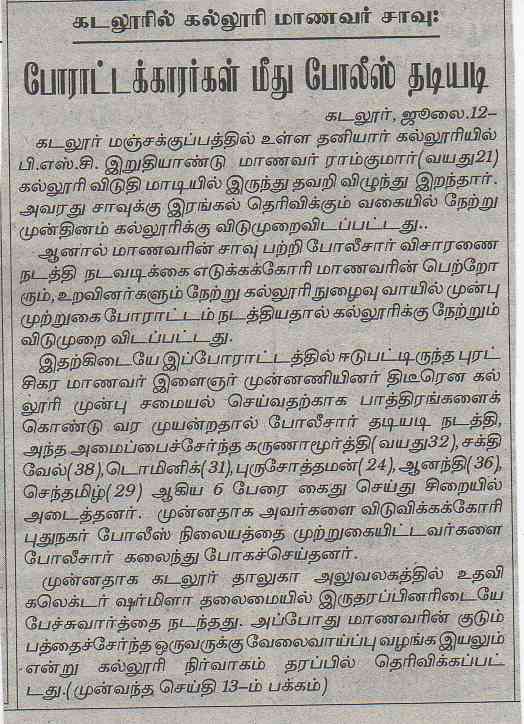 கடலூரில் கல்லூரி மாணவர் சாவு:
போராட்டக்காரர்கள் மீது போலீஸ் தடியடி
கடலூர், ஜூலை.12–
கடலூர் மஞ்சக்குப்பத்தில் உள்ள தனியார் கல்லூரியில்
பி.எஸ்.சி. இறுதியாண்டு மாணவர் ராம்குமார்(வயது21)
கல்லூரி விடுதி மாடியில் இருந்து தவறி விழுந்து இறந்தார்.
அவரது சாவுக்கு இரங்கல் தெரிவிக்கும் வகையில் நேற்று
முன்தினம் கல்லூரிக்கு விடுமுறைவிடப்பட்டது..
ஆனால் மாணவரின் சாவு பற்றி போலீசார் விசாரணை
நடத்தி நடவடிக்கை எடுக்கக்கோரி மாணவரின் பெற்றோ
ரும்,உறவினர்களும் நேற்று கல்லூரி நுழைவு வாயில் முன்பு
முற்றுகை போராட்டம் நடத்தியதால் கல்லூரிக்கு நேற்றும்
விடுமுறை விடப்பட்டது.
இதற்கிடையே இப்போராட்டத்தில் ஈடுபட்டிருந்த புரட்
சிகர மாணவர் இளைஞர் முன்னணியினர் திடீரென கல்
லூரி முன்பு சமையல் செய்வதற்காக பாத்திரங்களைக்
கொண்டு வர முயன்றதால் போலீசார் தடியடி நடத்தி,
அந்த அமைப்பைச்சேர்ந்த கருணாமூர்த்தி(வயது32), சக்தி
வேல்(38),டொமினிக்(31),புருசோத்தமன்(24),ஆனந்தி(36),
செந்தமிழ்(29) ஆகிய 6 பேரை கைது செய்து சிறையில்
அடைத்தனர். முன்னதாக அவர்களை விடுவிக்கக்கோரி
புதுநகர் போலீஸ் நிலையத்தை முற்றுகையிட்டவர்களை
போலீசார் கலைந்து போகச்செய்தனர்.
முன்னதாக கடலூர் தாலுகா அலுவலகத்தில் உதவி
கலெக்டர் ஷர்மிளா தலைமையில் இருதரப்பினரிடையே
பேச்சுவார்த்தை நடந்தது. அப்போது மாணவரின் குடும்
பத்தைச்சேர்ந்த ஒருவருக்கு வேலைவாய்ப்பு வழங்க இயலும்
என்று கல்லூரி நிர்வாகம் தரப்பில் தெரிவிக்கப்பட்
டது.(முன்வந்த செய்தி 13–ம் பக்கம்)